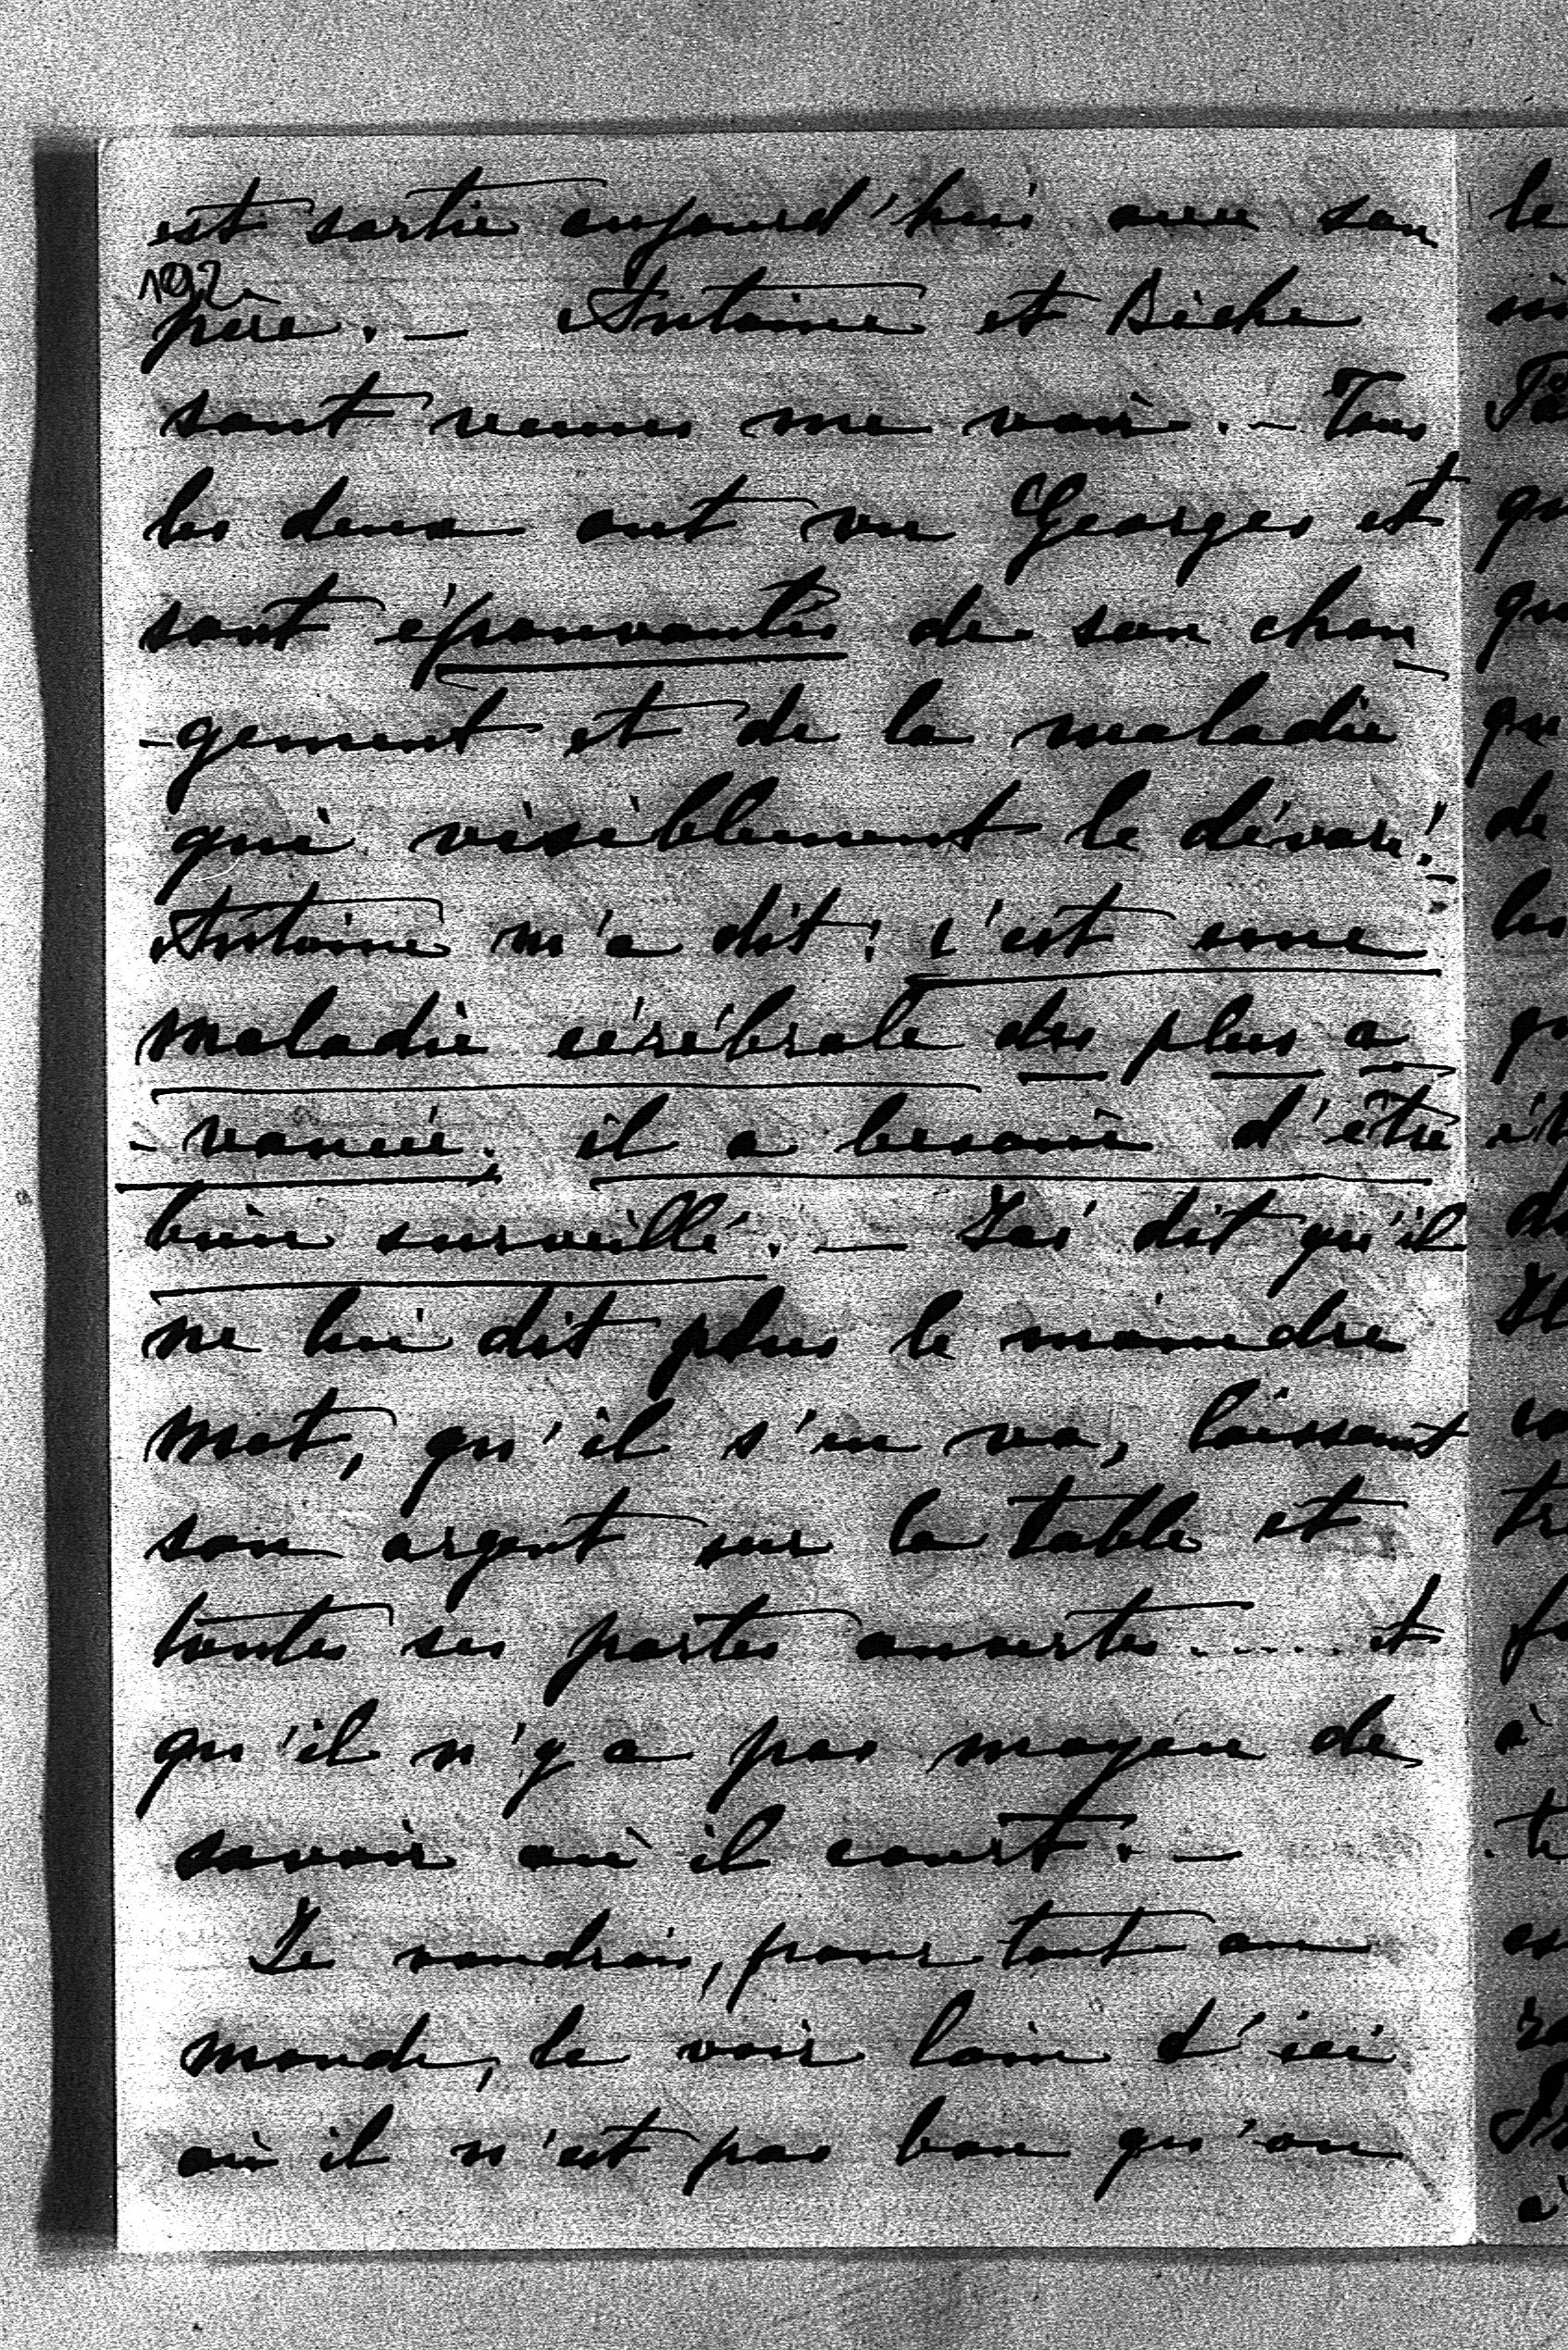 est sortie aujourd'hui avec son
192
père. — Antoine et Bèche
sont venus me voir. — Tous
les deux ont vu Georges et
sont épouvantés de son chan
-gement et de la maladie
qui visiblement le dévore! —
Antoine m'a dit: c'est une
maladie cérébrale des plus a
-vancée; il a besoin d'être
bien surveillé. — J'ai dit qu'il
ne lui dit plus le moindre
mot, qu'il s'en va, laissant
son argent sur la table et
toutes ses portes ouvertes..... et
qu'il n'y a pas moyen de
savoir où il court. —
Je voudrais, pour tout au
monde, le voir loin d'ici
où il n'est pas bon qu'on